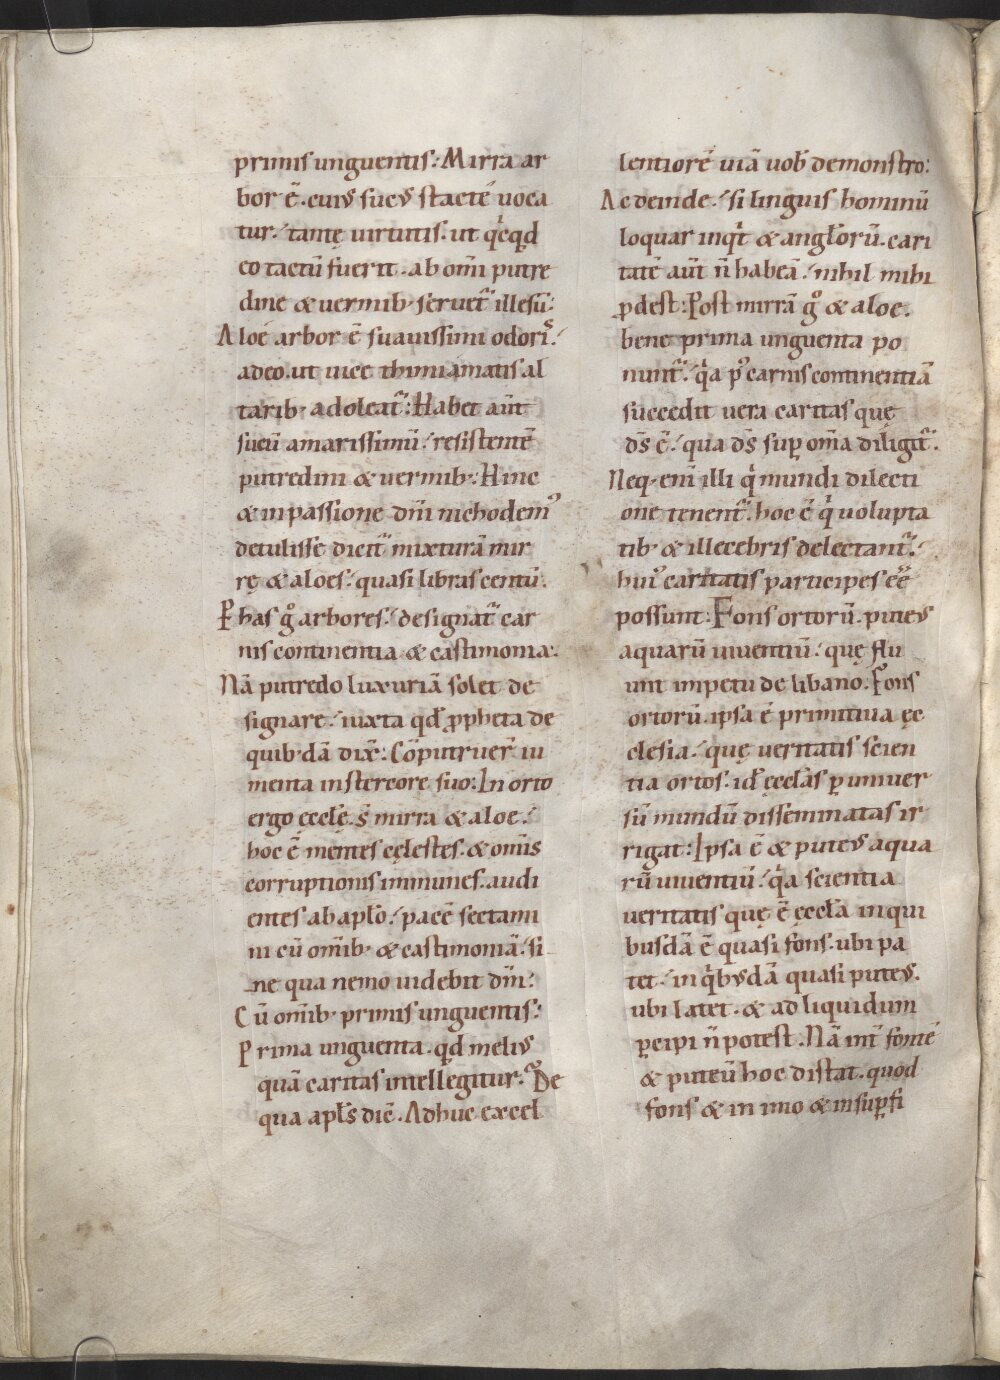 primis unguentis: Mirra ar
bor ē. eui᷒ suc᷒ stactē uoca
tur. tantę uirtutis. ut qͥcqͥd
eo tactū fuerit. ab om̄i putre
dine & uermib· seruet᷑ illesū:
Aloe arbor ē suauissimi odoris.
adeo. ut uice thimiamatis al
tarib· adoleat᷑: Habet aūt
sucū amarissimū. resistentē
putredini & uermib·: Hinc
& in passione dn̄i nichodem᷒
detulisse dicit᷑ mixturā mir
rę & aloes. quasi libras centū.
P has gͦ arbores. designat᷑ car
nis continentia & castimonia:
Nā putredo luxuriā solet de
signare. iuxta qd̄ ꝓpheta de
quib·dā dix̄: Cōputruer̄ iu
menta in stercore suo: In orto
ergo ęccłę. s̄ mirra & aloe.
hoc ē mentes cęlestes. & om̄is
corruptionis immunes. audi
entes ab apło. pacē sectami
ni cū om̄ib· & castimoniā. si
ne qua nemo uidebit dn̄m:
Cū om̄ib· primis unguentis:
Prima unguenta. qd̄ meli᷒
quā caritas intellegitur. De
qua apłs dic̄. Adhuc excel
lentiorē uiā uob̄ demonstro:
Ac deinde. si linguis hominū
loquar inqͥt & angłorū. cari
tatē aūt n̄ habeā. nihil mihi
ꝓdest: Post mirrā gͦ & aloe.
bene prima unguenta po
nunt᷑. qͥa p᷒ carnis continentiā
succedit uera caritas quę
ds̄ ē. qua ds̄ sup̱ om̄a diligit᷑.
Neq· enī illi qͥ mundi dilecti
one tenent᷑. hoc ē qͥ uolupta
tib· & illecebris delectant᷑.
hui᷒ caritatis participes ēē
possunt: Fons ortorū. pute᷒
aquarū uiuentiū. quę flu
unt impetu de libano. Fons
ortorū. ipsa ē primitiua ęc
clesia. quę ueritatis scien
tia ortos. id̄ ęccłas ꝑ uniuer
sū mundū disseminatas ir
rigat: Ipsa ē & pute᷒ aqua
rū uiuentiū. qͥa scientia
ueritatis quę ē ęccła in qui
busdā ē quasi fons. ubi pa
tet. in qͥb᷒dā quasi pute᷒.
ubi latet. & ad liquidum
ꝑcipi n̄ potest. Nā int̄ fontē
& puteū hoc distat. quod
fons & in imo & in sup̱fi